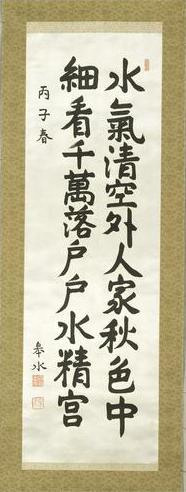 水氣清空外人家秋色中
細看千萬落戶戶水精宮
丙子春
皐水